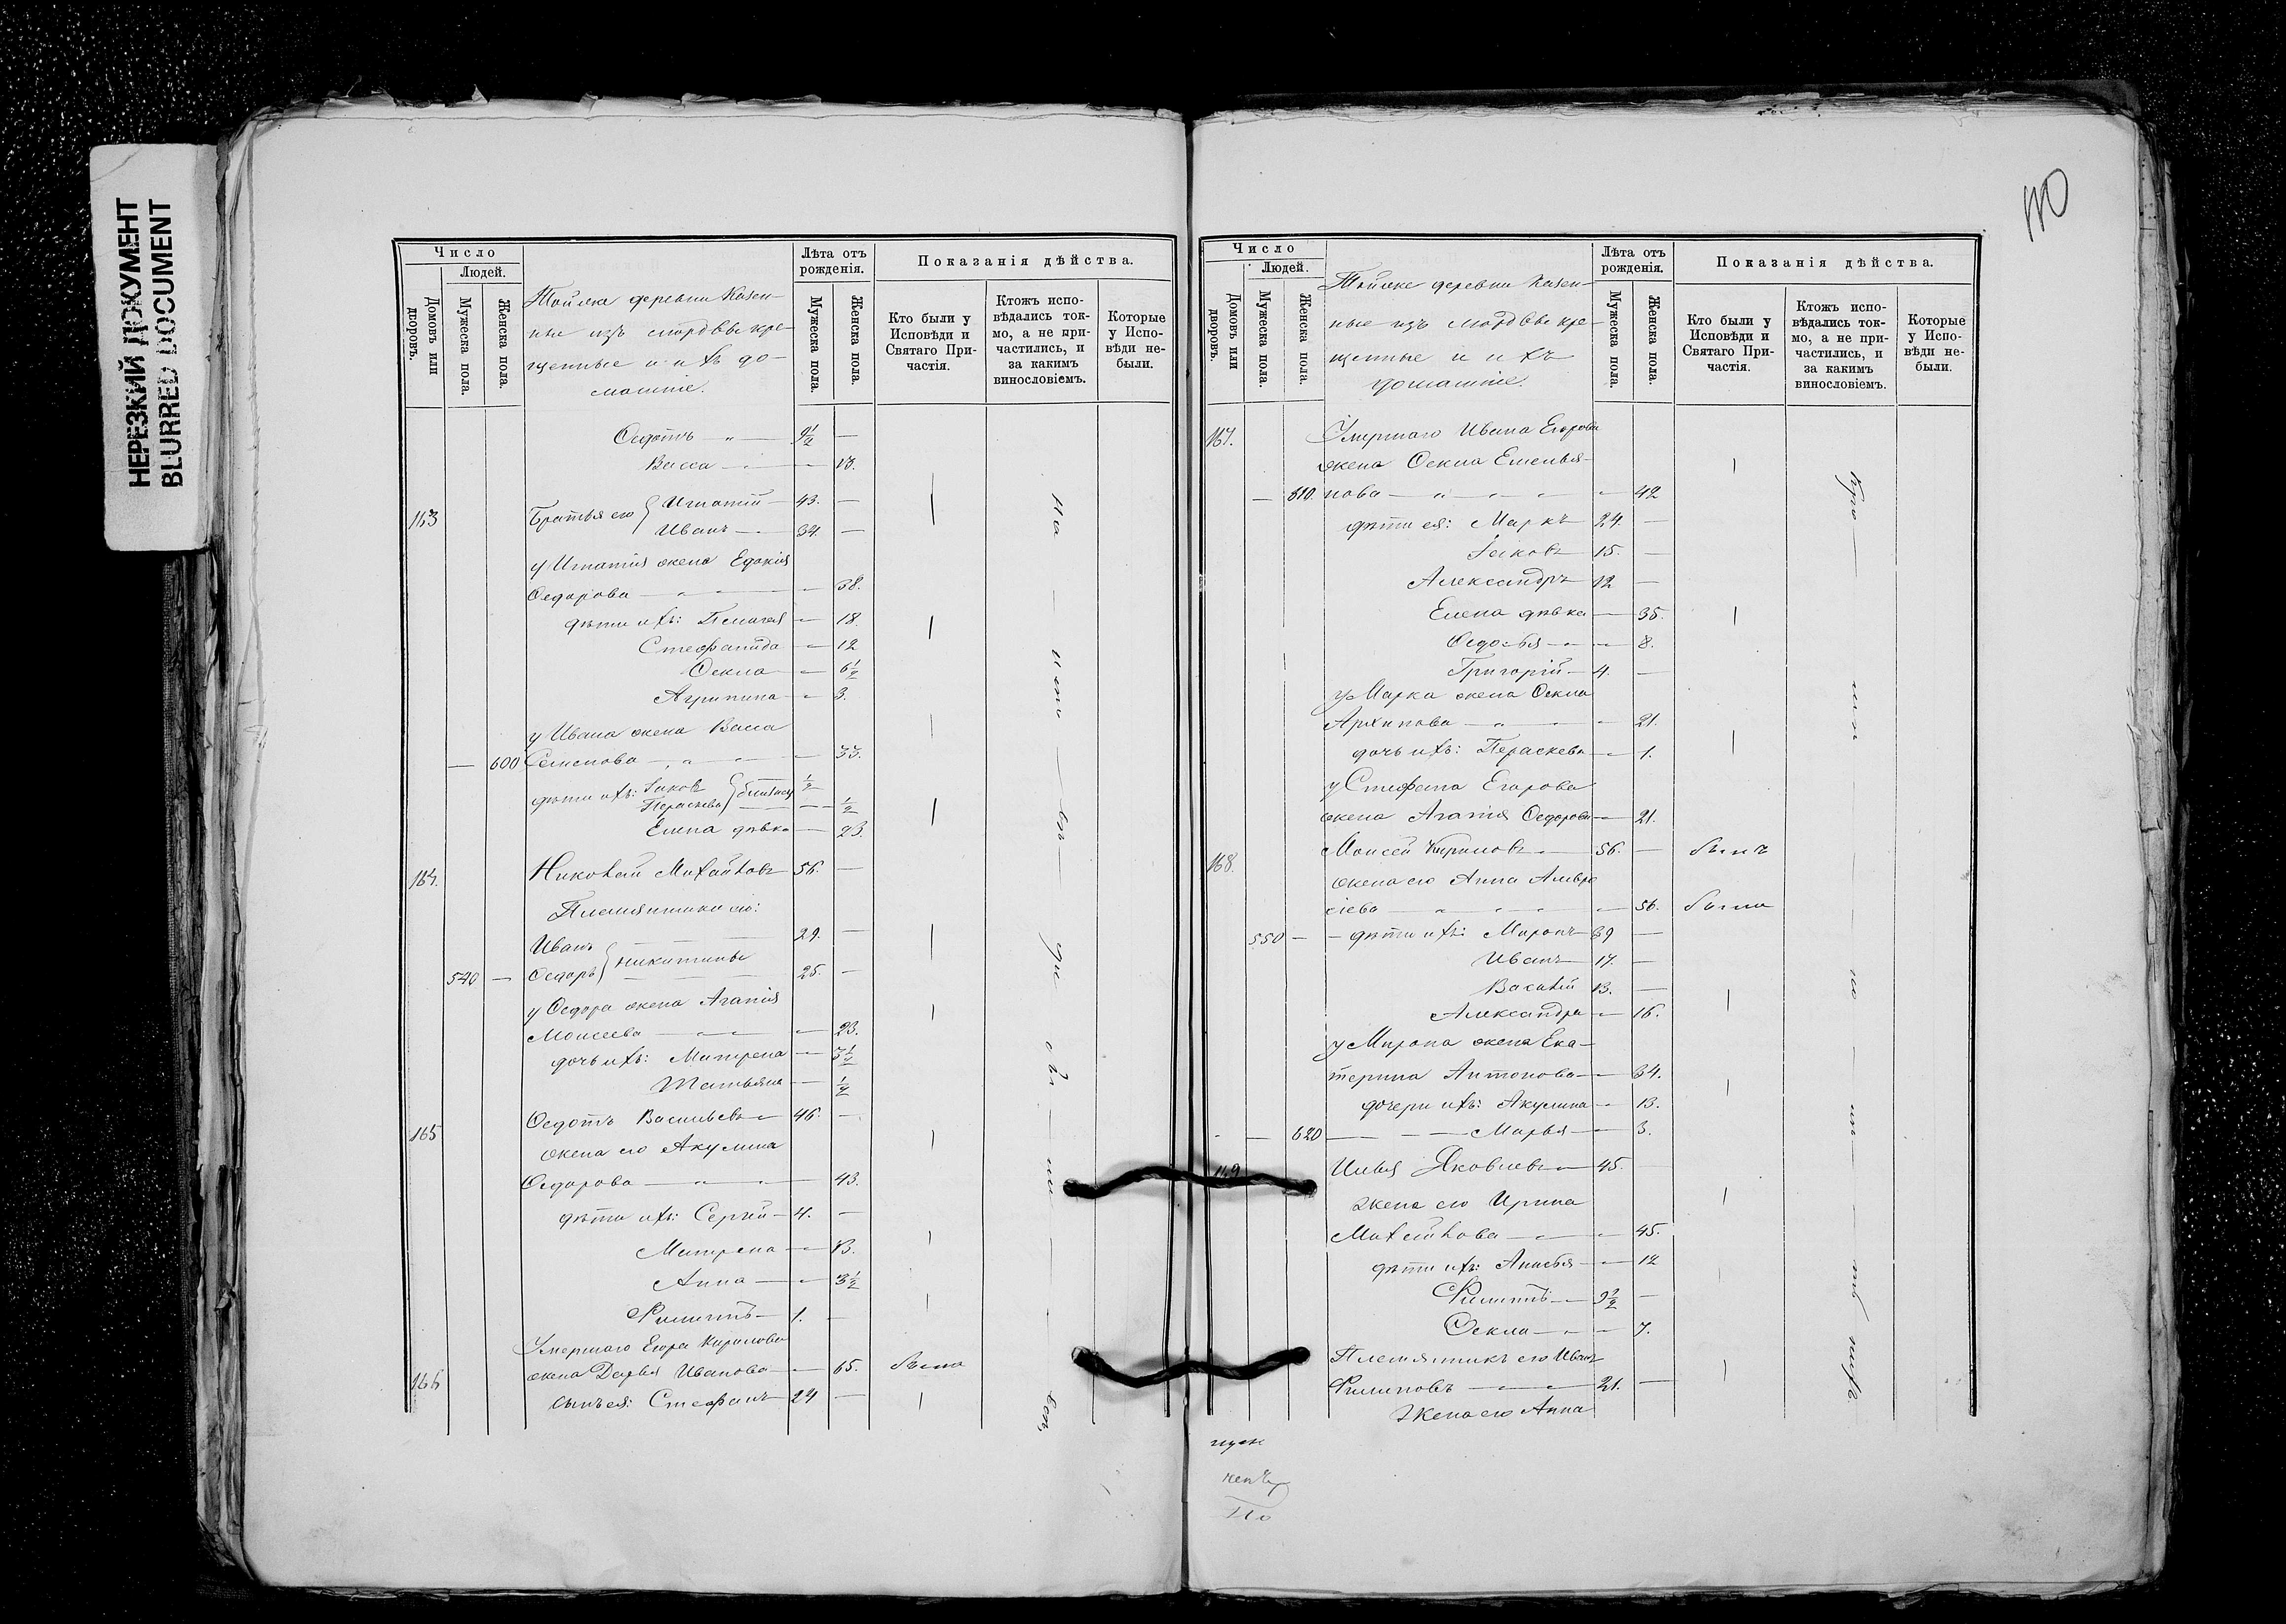 НЕРЕЗКИЙ ДОКУМЕНТ
BLURRED DOCUMENT
Число
Людей.
Домовъ или дворовъ.
Мужеска пола.
Женска пола.
Тойже деревни Казен-
ные изъ мордвы кре-
щенные и ихъ до-
машние.
Лѣта отъ рожденія.
Мужеска пола.
Женска пола.
Показанія дѣйства.
Кто были у Исповѣди и Святаго При-частія.
Ктожъ испо-вѣдались ток-мо, а не при-частились, и за какимъ винословіемъ.
Которые у Испо-вѣди не-были.
Ѳедотъ 9½
Васса 13.
163 Братья его Игнатій 43.
Иванъ 34.
у Игнатія жена Евдокія
Ѳедорова 38.
дѣти ихъ: Пелагея 18.
Стефанида 12
Ѳекла 6½
Агрипина 3.
у Ивана жена Васса
600 Семенова 33.
дѣти ихъ: Іаковъ ½
Параскева близнецы ½
Елена дѣвка 23.
164. Николай Михайловъ 56.
Племянники его:
Иванъ 29.
Никитины
540 Ѳедоръ 25.
у Ѳедора жена Агапія
Моисеева 23.
дочь ихъ: Матрена 3½
Татьяна ½
165 Ѳедотъ Васильевъ 46.
жена его Акулина
Ѳедорова 43.
дѣти ихъ: Сергій 4.
Матрена 13.
Анна 3½
Филиппъ 1.
Умершаго Егора Кирилова
166 жена Дарья Иванова 65. была
сынъ ея: Стефанъ 24
Число
Людей.
Домовъ или дворовъ.
Мужеска пола.
Женска пола.
Тойже деревни Казен-
ные изъ мордвы кре-
щенные и ихъ
домашние.
Лѣта отъ рожденія.
Мужеска пола.
Женска пола.
Показанія дѣйства.
Кто были у Исповѣди и Святаго При-частія.
Ктожъ испо-вѣдались ток-мо, а не при-частились, и за какимъ винословіемъ.
Которые у Испо-вѣди не-были.
167. Умершаго Ивана Егорова
жена Ѳекла Емелья-
610. нова 42
дѣти ея: Маркъ 24.
Іаковъ 15.
Александръ 12
Елена дѣвка 35.
Ѳедосья 8.
Григорій 4.
у Марка жена Ѳекла
Архипова 21.
дочь ихъ: Параскева 1.
у Стефана Егорова
жена Агапія Ѳедорова 21.
168. Моисей Кириловъ 56. былъ
жена его Анна Амвро
сіева 56. была
550 дѣти ихъ: Миронъ 39
Иванъ 17.
Василій 13.
Александра 16.
у Мирона жена Ека-
терина Антонова 34.
дочери ихъ: Акулина 13.
620 Марья 3.
169 Илья Яковлевъ 45.
жена его Ирина
Михайлова 45.
дѣти ихъ: Анисья 12
Филиппъ 9½
Ѳекла 7.
Племянникъ его Иванъ
Филиповъ 21.
Жена его Анна